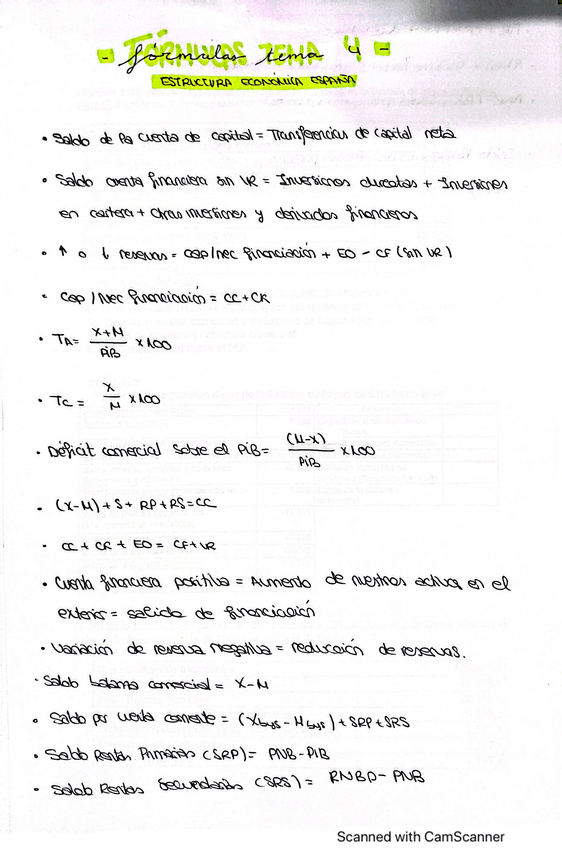 - fórmulas tema 4 -
ESTRUCTURA ECONÓMICA ESPAÑA
• Saldo de la cuenta de capital = Transferencias de capital neta
• Saldo cuenta financiera sin VR = Inversiones directas + Inversiones
en cartera + Otras inversiones y derivados financieros
• ↑ o ↓ reservas = cap/nec financiación + EO - CF (sin VR)
• Cap / Nec financiación = CC + CK
• TA = X+M / PiB x 100
• TC = X / M x 100
• Déficit comercial sobre el PiB = (M-X) / PiB x 100
• (X-M) + S + RP + RS = CC
• CC + CK + EO = CF + VR
• Cuenta financiera positiva = Aumento de nuestros activa en el
exterior = salida de financiación
• Variación de reserva negativa = reducción de reservas.
• Saldo balanza comercial = X-M
• Saldo por cuenta corriente = (Xbys - Mbys) + SRP + SRS
• Saldo Rentas Primarias (SRP) = PNB - PIB
• Saldo Rentas Secundarias (SRS) = RNBD - PNB
Scanned with CamScanner